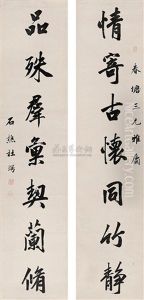 春塘三兄雅屬
情寄古懷同竹靜
品殊羣彙契蘭脩
石樵杜堮